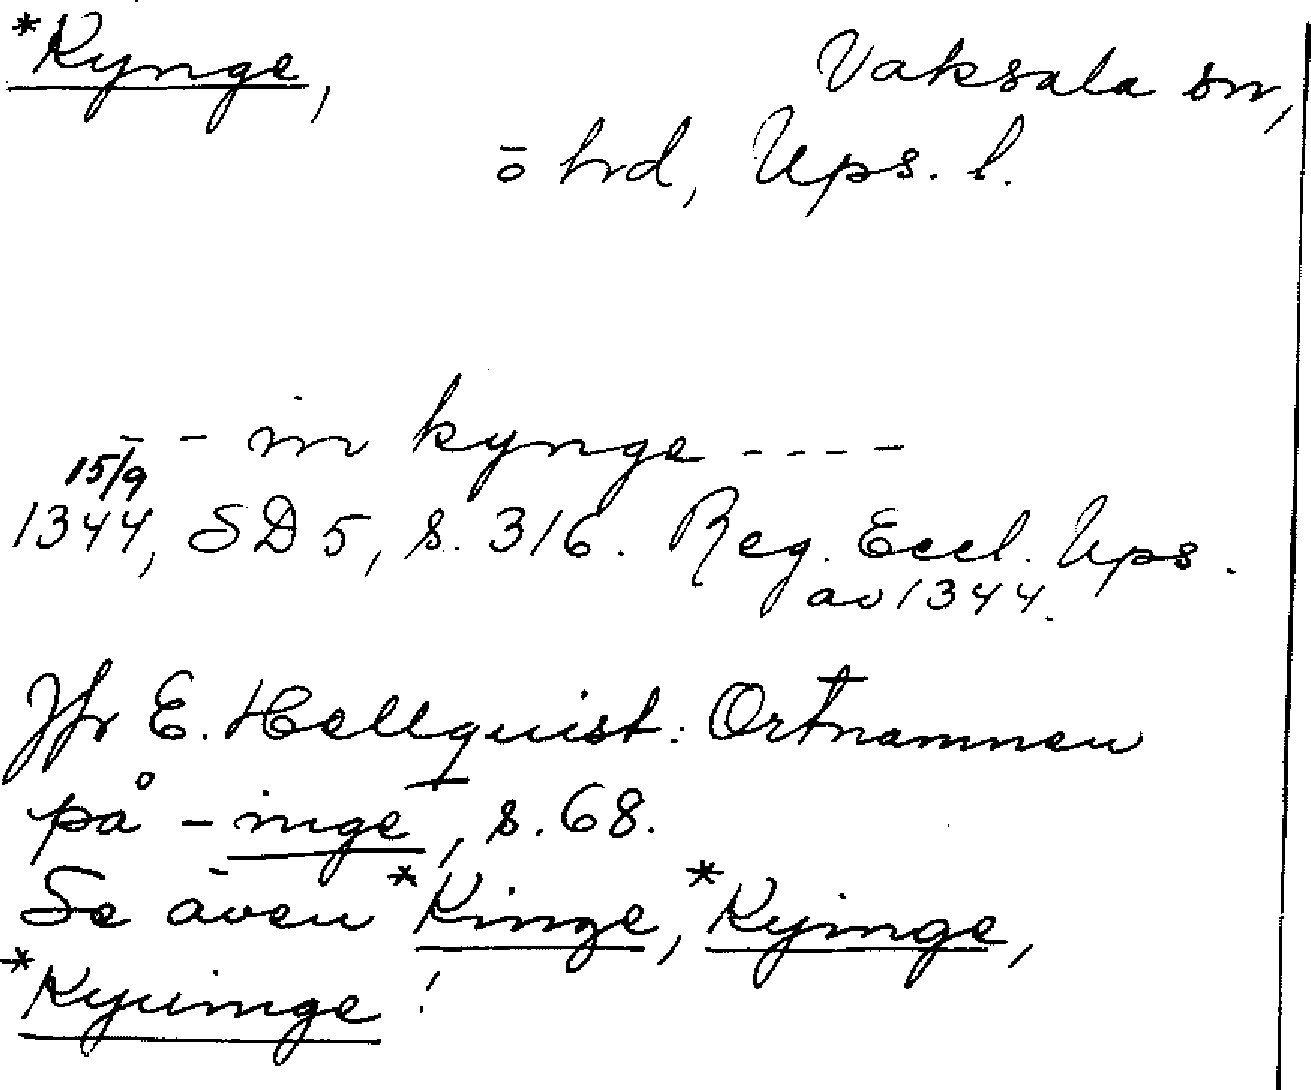 *Kynge, Vaksala sn,
ö hrd, Ups. l.
- - in kynge - - - -
15/9
1344, SD 5, s. 316. Reg. Eccl. Ups.
av 1344.
Jfr E. Hellquist: Ortnamnen
på -inge, s. 68.
Se även *Kinge, *Kyinge,
*Kyuinge!